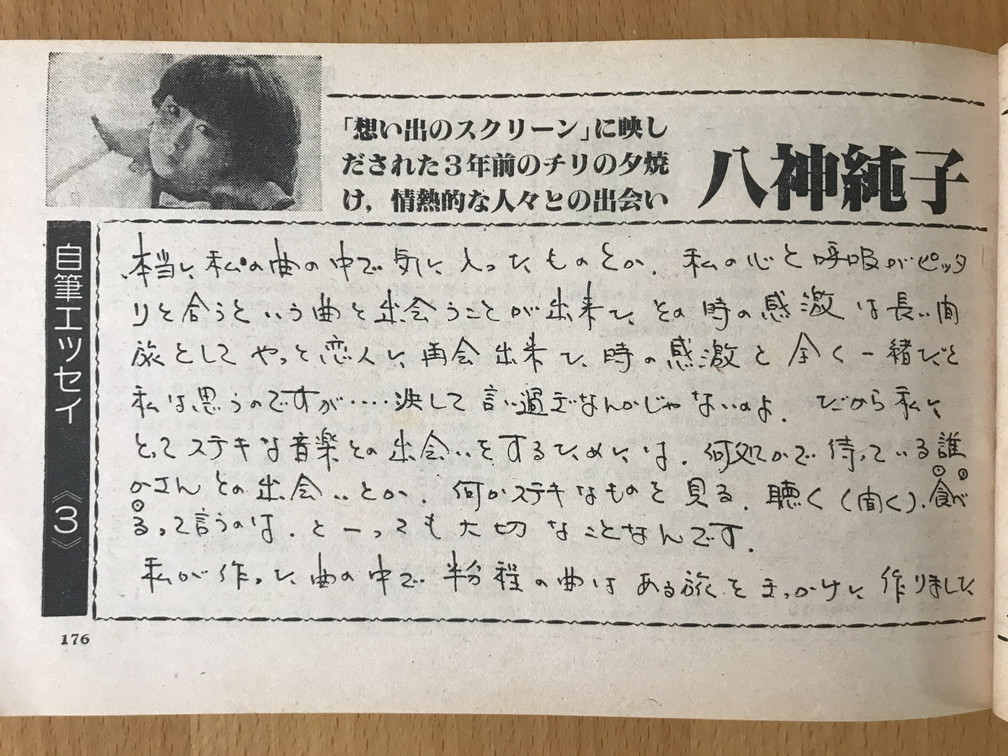 「想い出のスクリーン」に映し
だされた3年前のチリの夕焼
け，情熱的な人々との出会い
八神純子
自筆エッセイ 《3》
本当に私の曲の中で気に入ったものとか、私の心と呼吸がピッタ
リと合うという曲と出会うことが出来た、その時の感激は長い間
旅としてやっと恋人に再会出来た時の感激と全く一緒だと
私は思うのですが……決して言い過ぎなんかじゃないのよ。だから私に
とってステキな音楽との出会いをするためには、何処かで待っている誰
かさんとの出会いとか、何かステキなものを見る、聴く（聞く）、食べ
るって言うのは、とーっても大切なことなんです。
私が作った曲の中で半分程の曲はある旅をきっかけに作りました
176